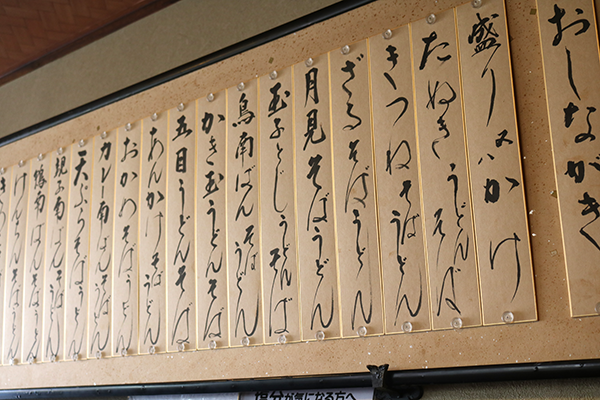 おしながき
盛り又はかけ
たぬき うどん そば
きつねそばうどん
ざるそばうどん
月見そばうどん
玉子とじうどんそば
鳥南ばんそばうどん
かき玉うどんそば
五目うどんそば
あんかけそばうどん
おかめそばうどん
カレー南ばんそばうどん
天ぷらそばうどん
鴨南ばんそばうどん
けんちんそばうどん
塩分が気になる方へ